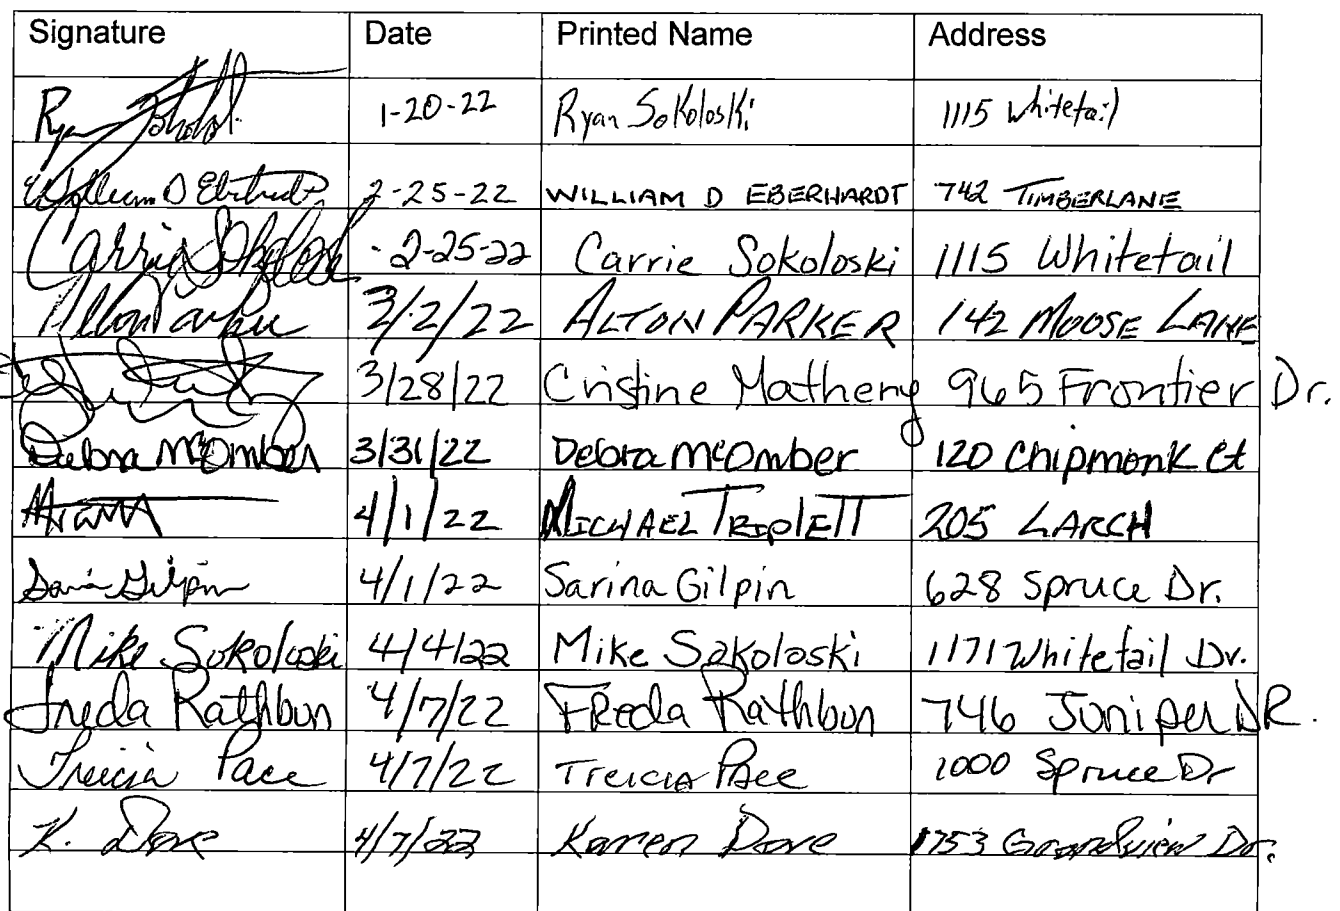 Signature Date Printed Name Address
Ryan Sokoloski 1-20-22 Ryan Sokoloski 1115 Whitetail
William D Eberhardt 2-25-22 WILLIAM D EBERHARDT 742 TIMBERLANE
Carrie Sokoloski 2-25-22 Carrie Sokoloski 1115 Whitetail
Alton Parker 3/2/22 ALTON PARKER 142 MOOSE LANE
3/28/22 Cristine Matheny 965 Frontier Dr.
Debra McOmber 3/31/22 Debra McOmber 120 Chipmonk Ct
4/1/22 MICHAEL TRIPLETT 205 LARCH
Sarina Gilpin 4/1/22 Sarina Gilpin 628 Spruce Dr.
Mike Sokoloski 4/4/22 Mike Sokoloski 1171 Whitetail Dr.
Freda Rathbun 4/7/22 FReda Rathbun 746 Juniper DR.
Treicia Pace 4/7/22 Treicia Pace 1000 Spruce Dr
K. Dove 4/7/22 Karen Dove 1753 Grandview Dr.